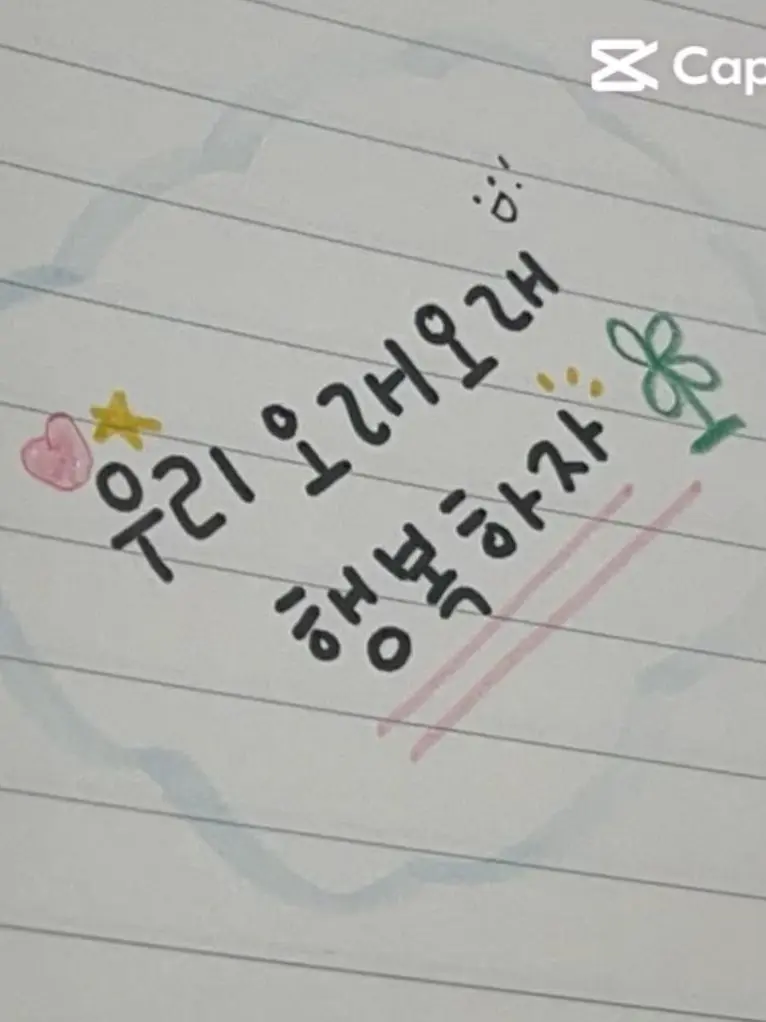 Cap
우리 오래오래
행복하자